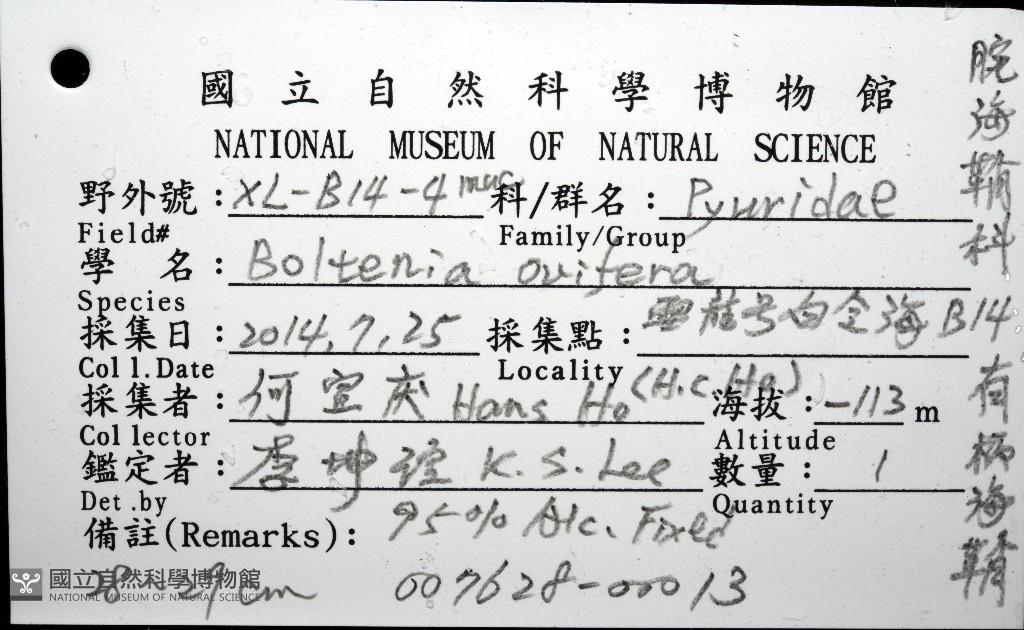 國立自然科學博物館
NATIONAL MUSEUM OF NATURAL SCIENCE
野外號：XL-B14-4 科/群名：Pyuridae
Field# Family/Group
學 名：Boltenia ovifera
Species
採集日：2014,7,25 採集點：雪龍号白令海B14
Coll.Date Locality
採集者：何宣庆 Hans Ho (H.C.Ho) 海拔：-113 m
Collector Altitude
鑑定者：李坤瑄 K.S.Lee 數量：1
Det.by Quantity
備註(Remarks)：95% Alc. Fixed
cm 007628-00013
腕海鞘科
有柄海鞘
國立自然科學博物館
NATIONAL MUSEUM OF NATURAL SCIENCE